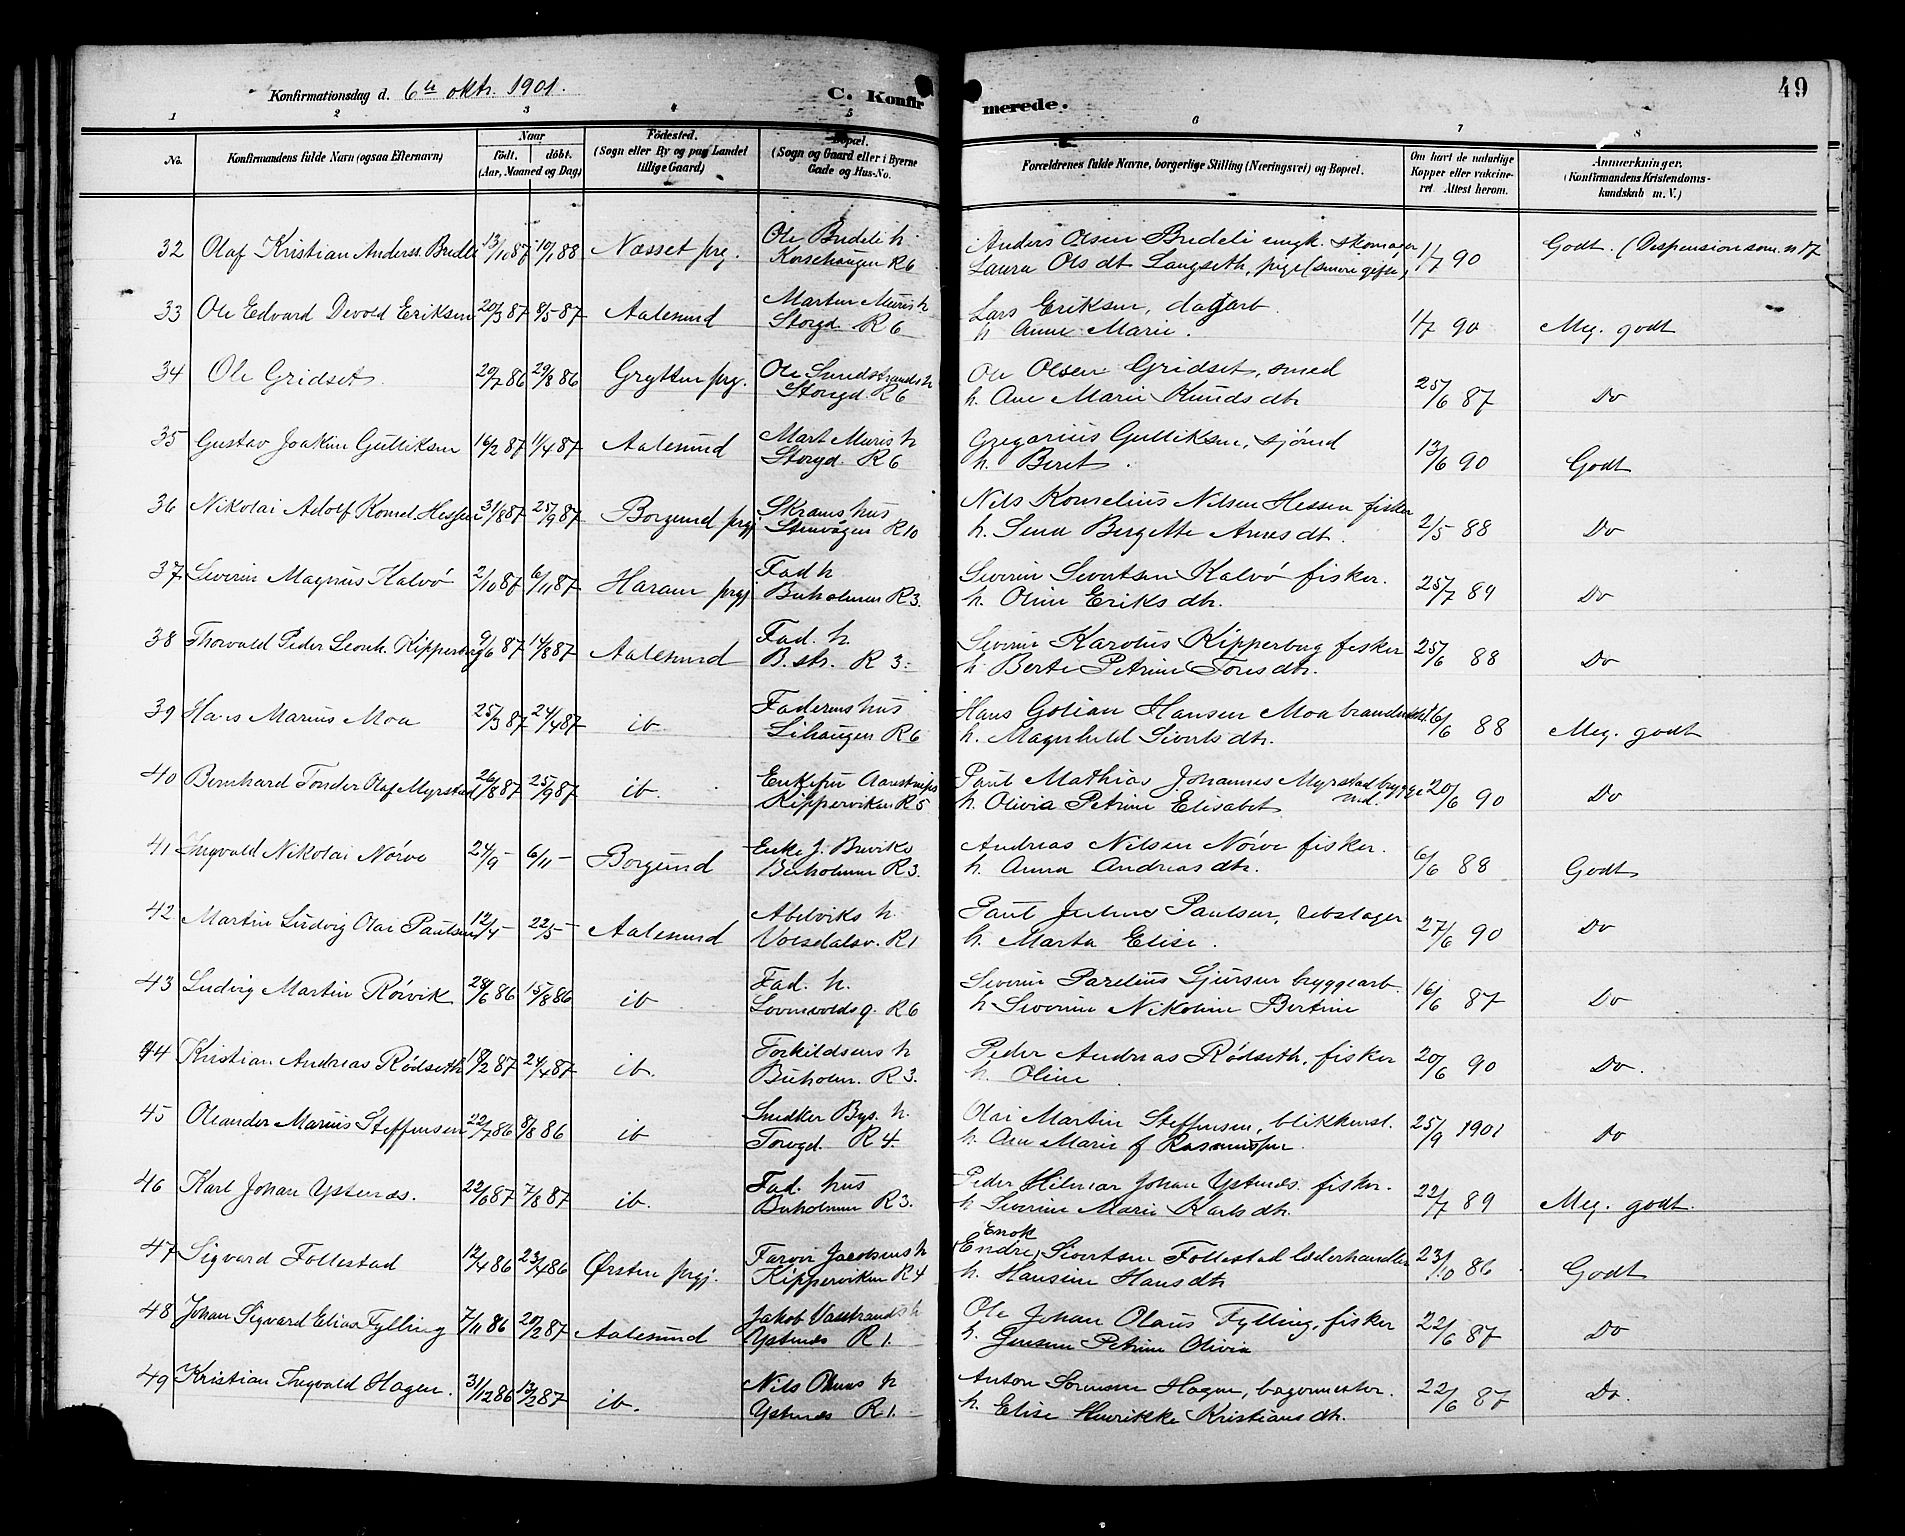 49
Konfirmationsdag d. 6te oktr. 1901.
C. Konfirmerede.
1 2 3 4 5 6 7 8
No.
Konfirmandens fulde Navn (ogsaa Efternavn)
Naar
født. døbt.
(Aar, Maaned og Dag)
Födested.
(Sogn eller By og paa Landet
tillige Gaard)
Bopæl.
(Sogn og Gaard eller i Byerne
Gade og Hus-No.
Forældrenes fulde Navne, borgerlige Stilling (Næringsvei) og Bopæl.
Om havt de naturlige
Kopper eller vakcine-
ret. Attest herom.
Anmærkninger.
(Konfirmandens Kristendoms-
kundskab m. V.)
32 Olaf Kristian Anderss. Budeli 13/10 87 10/1 88 Næsset prg. Ole Budeli h. Anders Olsen Budeli ungk. skomager 1/7 90 Godt. (Dispension som n 17
Korsehaugen R 6 Laura Olsdt Langseth, pige (senere gifte)
33 Ole Edvard Devold Eriksen 20/3 87 8/5 87 Aalesund Martin Muris h Lars Eriksen, dagarb. 1/7 90 Meg. godt
Storgd. R 6 h. Anne Marie.
34 Ole Gridset 20/7 86 29/8 86 Grytten prg. Ole Sundstrands h Ole Olsen Gridset, smed 25/6 87 Do
Storgd. R 6 h. Ane Marie Knudsdtr
35 Gustav Joakim Gulliksen 16/2 87 11/4 87 Aalesund Mart. Muris h Gregarius Gulliksen, sjömd 13/6 90 Godt
Storgd. R 6 h. Beret.
36 Nikolai Adolf Kornel. Hessen 31/8 87 25/9 87 Borgund prgj Skrams hus Nils Kornelius Nilsen Hessen fisker 2/5 88 Do
Stenvågen R 10 h. Sena Bergette Arnesdt.
37 Severin Magnus Kalvö 2/10 87 6/11 87 Haram prgj Fad h Severin Sivertsen Kalvö fisker. 25/7 89 Do
Buholmen R 3. h. Oline Eriksdtr.
38 Thorvald Peder Leonh. Kipperberg 9/6 87 14/8 87 Aalesund Fad. h. Severin Karolus Kipperberg fisker 25/6 88 Do
B. str. R 3. h. Berte Petrine Toresdtr.
39 Hans Marius Moa 25/3 87 24/4 87 ib Faderens hus Hans Golian Hansen Moa 6/6 88 Meg. godt
Lihaugen R 6 h. Magnhild Sivertsdtr.
40 Bernhard Tonder Olaf Myrstad 26/8 87 25/9 87 ib. Enkefru Paul Mathias Johannes Myrstad bygge 20/6 90 Do
Kipperviken R 5 h. Olivia Petrine Elisabet md.
41 Ingvald Nikolai Nörve 24/9 - 6/11 - Borgund Enke J. Breviks Andreas Nilsen Nörve fisker. 6/6 88 Godt
Buholmen R 3. h. Anna Andreasdtr.
42 Martin Ludvig Olai Paulsen 12/4 - 22/5 - Aalesund Abelviks h Paul Julius Paulsen, rebslager 27/6 90 Do
Volsdalsv. R 1 h. Marta Elise.
43 Ludvig Martin Rörvik 28/6 86 15/8 86 ib Fad. h. Severin Parelius Gjørsen bryggearb. 16/6 87 Do
Lovenvoldsg. R 6 h Severine Nikoline Bertine
44 Kristian Andreas Rödseth 18/2 87 24/4 87 ib. Torkildsens h Peder Andreas Rödseth, fisker 20/6 90 Do.
Buholm. R 3. h. Oline
45 Oleander Marius Steffensen 22/7 86 8/8 86 ib Snedker Bys. h. Olai Martin Steffensen, blikkensl. 25/9 1901 Do
Torvgd. R 4. h. Ane Marie f Rasmussen
46 Karl Johan Ystenæs. 22/6 87 7/8 87 ib. Fad. hus Peder Hilmar Johan Ystenæs. fisker. 22/7 89 Meg. godt.
Buholmen R 3. h Severine Marie Karlsdtr.
47 Sigvard Follestad 12/4 86 23/4 86 Ørsten prgj. Farver Jacobsens h Enok (Endre) Sivertsen Follestad læderhandler 23/10 86 Godt
Kipperviken R 4 h. Hansine Hansdtr
48 Johan Sigvard Elias Fylling 7/11 86 20/2 87 Aalesund Jakob Vasstrands h Ole Johan Olaus Fylling, fisker 22/6 87 Do
Ystenæs R 1. h. Jensine Petrine Olivia
49 Kristian Ingvald Hagen. 31/12 86 13/2 87 ib. Nils h Anton Sörensen Hagen, bagermester. 22/6 87 Do.
Ystenæs R 1. h. Elise Henrikke Kristiansdtr.